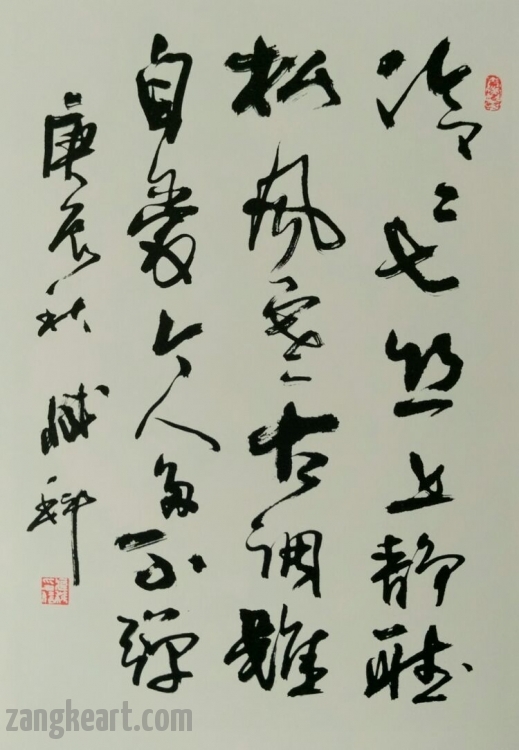 泠々七丝上静聽
松風寒古調雖
自愛今人多不彈
庚辰秋 臧科
zangkeart.com